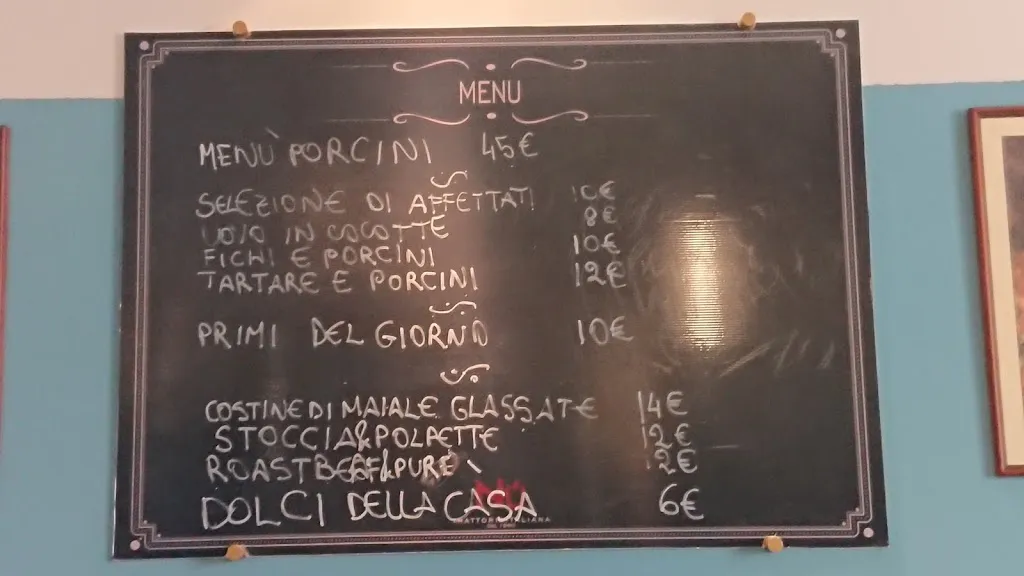 MENU
MENÙ PORCINI 45€
SELEZIONE DI AFFETTATI 10€
UOVO IN COCOTTE 8€
FICHI E PORCINI 10€
TARTARE E PORCINI 12€
PRIMI DEL GIORNO 10€
COSTINE DI MAIALE GLASSATE 14€
STOCCIA&POLPETTE 12€
ROASTBEEF&PURÈ 12€
DOLCI DELLA CASA 6€
TRATTORIA ITALIANA